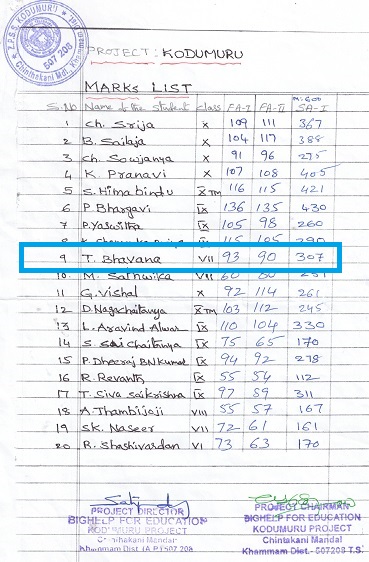 Z.P.S.S. KODUMURU
507 208
Chintakani Mdl.,
PROJECT: KODUMURU
MARKS LIST
S.No Name of the student class FA-I FA-II M:600 SA-I
1 Ch. Srija X 109 111 367
2 B. Sailaja X 104 117 388
3 Ch. Soujanya X 91 96 275
4 K. Pranavi X 107 108 405
5 S. Himabindu X TM 116 115 421
6 P. Bhargavi IX 136 135 430
7 P. Yaswitha IX 105 98 260
8 IX 115 105 290
9 T. Bhavana VII 93 90 307
10 M. Sathwika VII
11 G. Vishal X 92 114 261
12 D. Nagachaitanya X TM 103 112 245
13 L. Aravind Alwar IX 110 104 330
14 S. Sai Chaitanya IX 75 65 170
15 P. Dheeraj BN Kumar IX 94 92 278
16 R. Revanth IX 55 54 112
17 T. Siva Saikrishna IX 97 59 311
18 A. Thambijaji VIII 55 57 167
19 SK. Naseer VII 72 61 161
20 R. Shashivardan VI 73 63 170
PROJECT DIRECTOR
BIGHELP FOR EDUCATION
KODUMURU PROJECT
Chintakani Mandal
Khammam Dist. (A.P.) 507 208
PROJECT CHAIRMAN
BIGHELP FOR EDUCATION
KODUMURU PROJECT
Chintakani Mandal
Khammam Dist.- 507208 T.S.